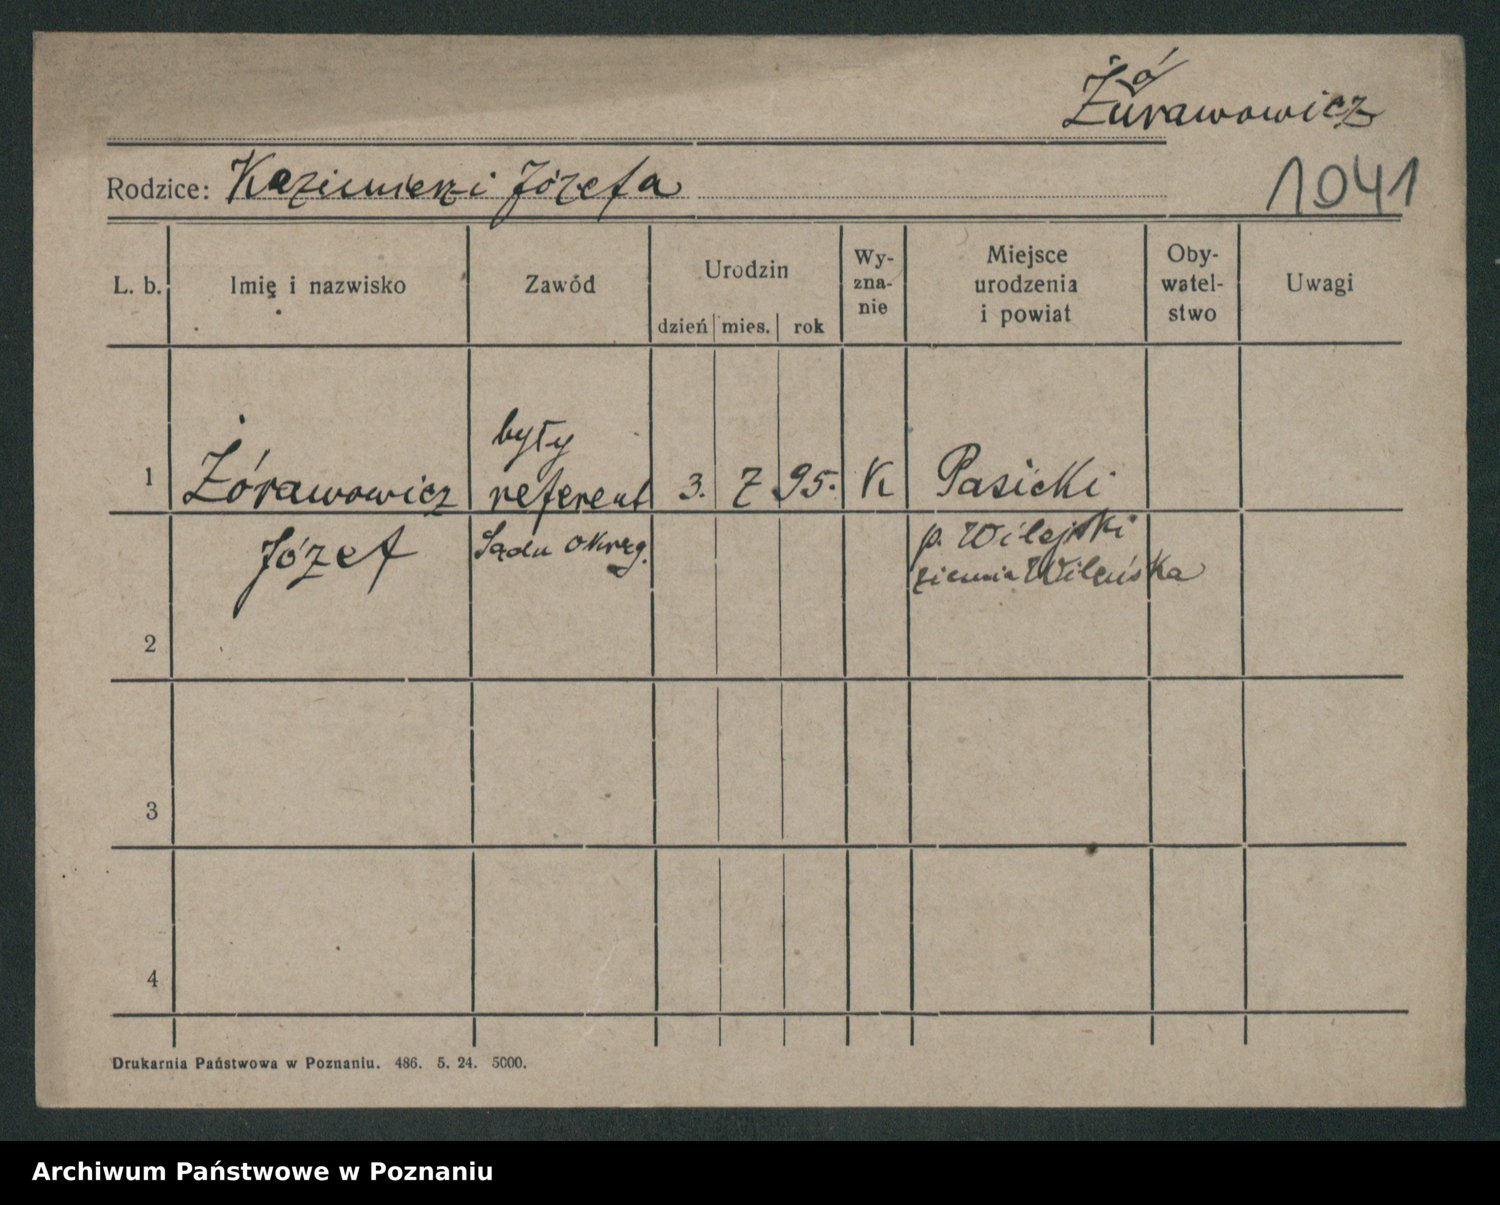 ó
Żurawowicz
Rodzice: Kazimierz i Józefa
1041
L. b. Imię i nazwisko Zawód Urodzin dzień mies. rok Wy-zna-nie Miejsce urodzenia i powiat Oby-watel-stwo Uwagi
były
1 Żórawowicz referent 3. 7 95. K Pasićki
Józef Sądu Okręg. p. Wilejski
ziemia Wileńska
2
3
4
Drukarnia Państwowa w Poznaniu. 486. 5. 24. 5000.
Archiwum Państwowe w Poznaniu